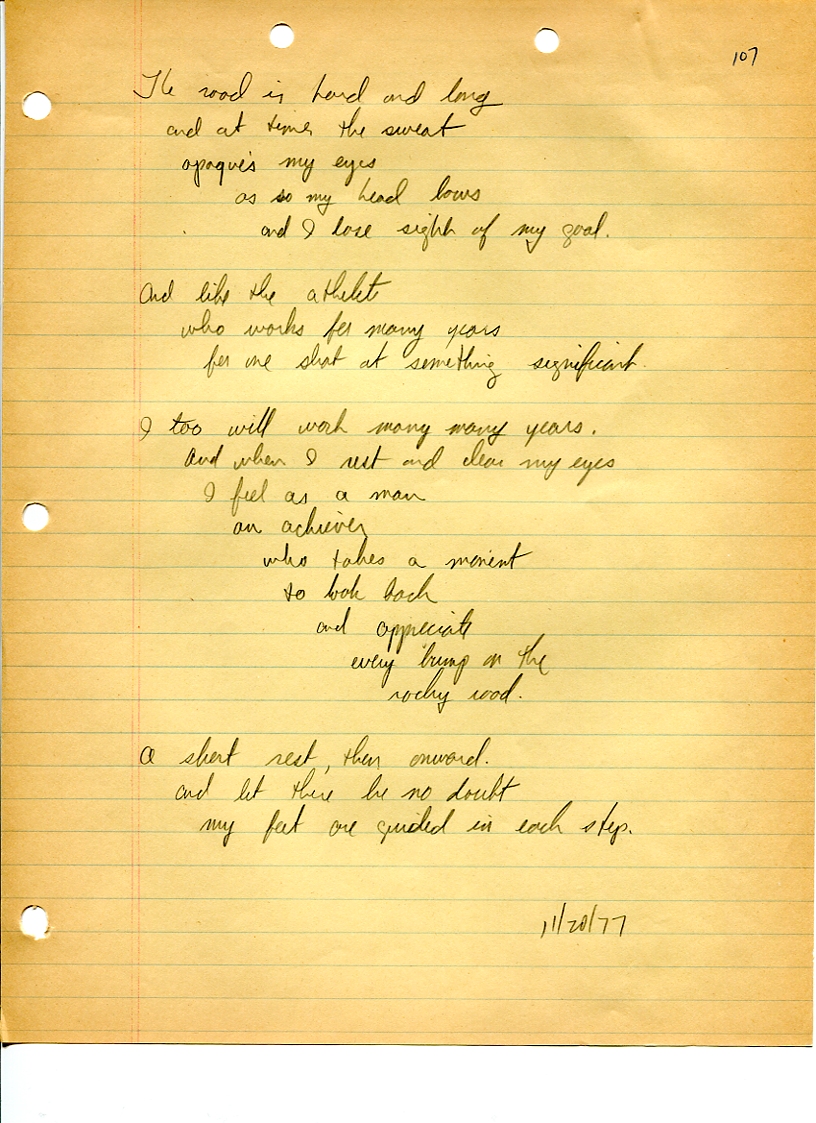 107
The road is hard and long
and at times the sweat
opaque's my eyes
as so my head bows
and I lose sight of my goal.
And like the athelete
who works for many years
for one shot at something significant.
I too will work many many years.
And when I rest and clear my eyes
I feel as a man
an achiever
who takes a moment
to look back
and appreciate
every bump on the
rocky road.
A short rest, then onward.
and let there be no doubt
my feet are guided in each step.
11/20/77